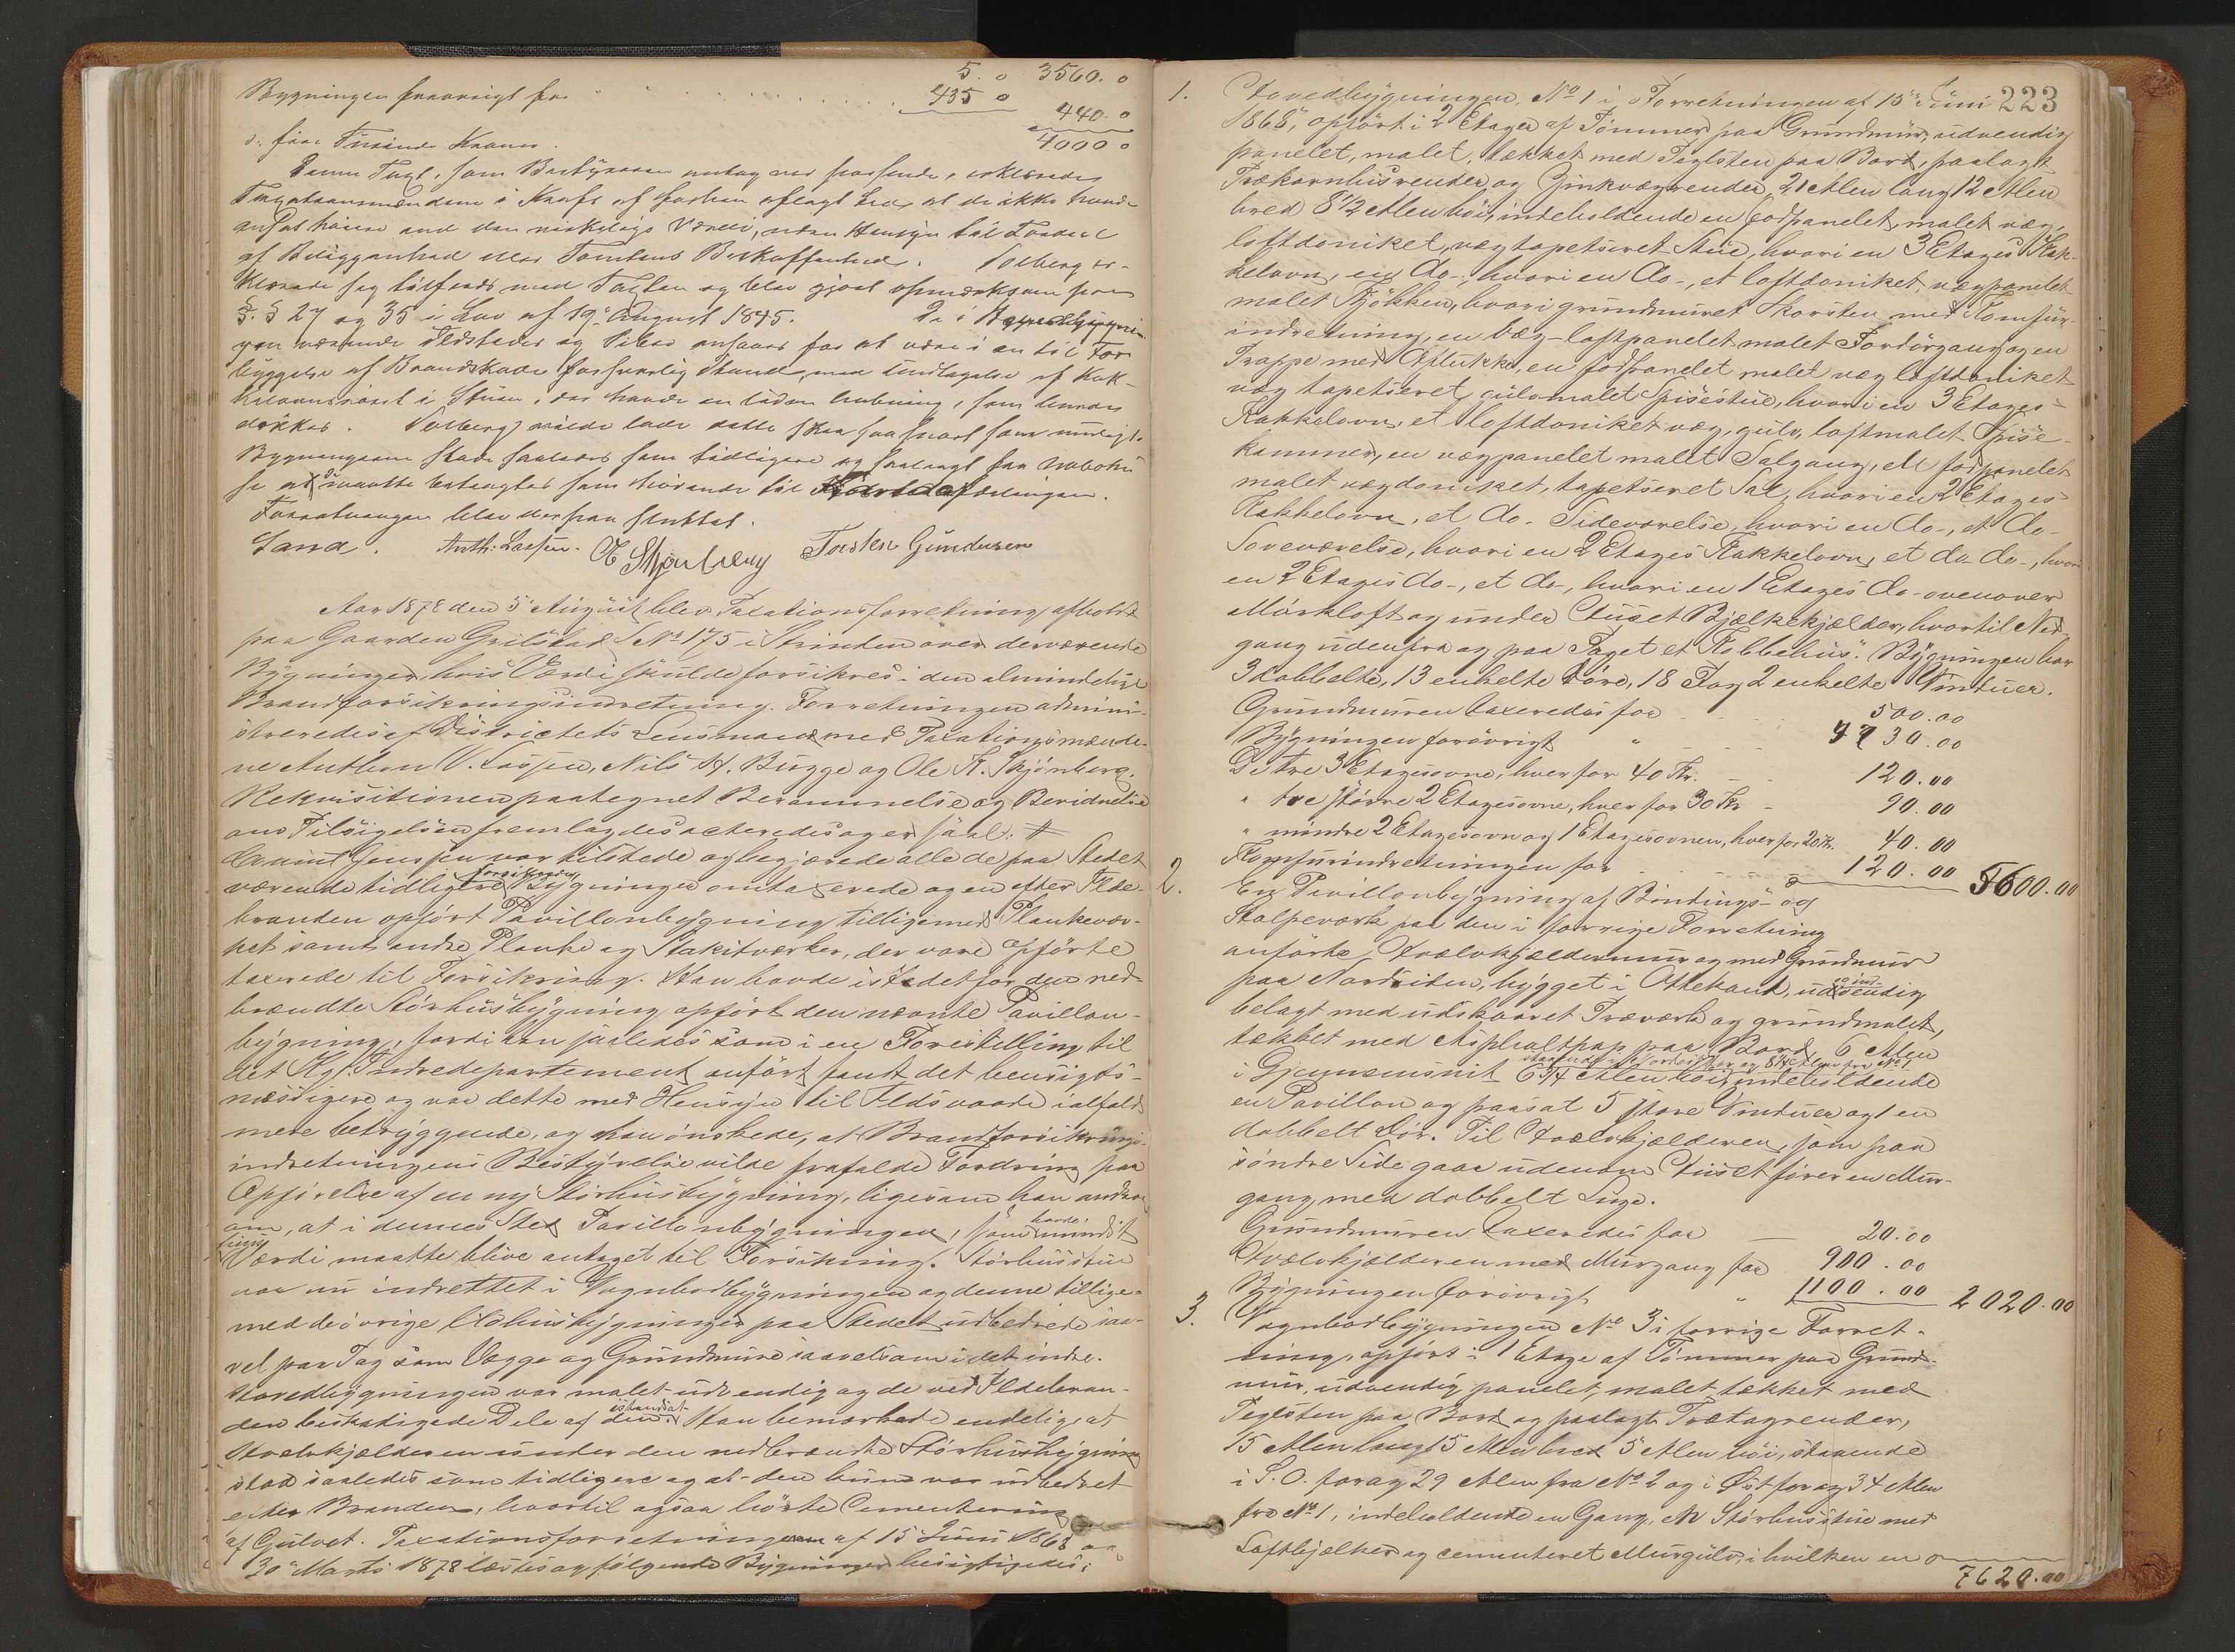 5. 0 3560. 0
Bygningen forøvrigt for 435 0
440. 0
4000 0
o: fire Tusinde Kroner.
Denne Taxt, som Bestyrelsen antog ved forsende, erklærede
Taxationsmændene i Kraft af forhen aflagt Eed at de ikke havde
ansat høiere end den virkelige Værdi, uden Hensyn til Fordele
af Beliggenhed eller Tomtens Beskaffenhed. Solberg er-
klærede sig tilfreds med Taxten og blev gjort opmærksom paa
§. § 27 og 35 i Lov af 19de August 1845. De i Bygnin-
gen værende Ildsteder og Piber ansaaes for at være i en til For-
byggelse af Brandskade forsvarlig Stand, med Undtagelse af Kak-
kelovnsrøret i Stuen, der havde en liden Aabning, som burde
dækkes. Solberg vilde lade dette skee saa snart som muligt.
Bygningerne stode saaledes som tidligere og
maatte betragtes som hørende til
Forretningen blev derpaa sluttet.
Sand. Anth: Lassen. O K Skjønberg Torsten Gundersen
Aar 1878 den 5 August blev Taxationsforretning afholdt
paa Gaarden Grilstad L No 175 i Strinden over derværende
Bygninger, hvis Værdi skulde forsikres i den almindelige
Brandforsikringsindretning. Forretningen admini-
streredes af Districtets Lensmand med Taxationsmænde-
ne Anthon W. Lassen, Nils H. Bugge og Ole K. Skjönberg.
Rekvisitionen paategnet Berammelse og Beviidnelse
om Tilsigelsen fremlagdes acteredes og er saal: #
Jenssen var tilstede og begjærede alle de paa Stedet
værende tidligere forsikrede Bygninger omtaxerede og en efter Ilde-
branden opfört Pavillonbygning tilligemed Plankevær-
ket samt andre Planke og Stakitværker, der vare opførte
taxerede til Forsikring. Han havde istedetfor den ned-
brændte Störhusbygning opfört den nævnte Pavillon-
bygning, fordi han saaledes som i en Forestilling til
det Kgl. Indredepartement anført fandt det hensigts-
mæssigere og var dette med Hensyn til Ildsvaade ialfald
mere betryggende, og han önskede, at Brandforsikrings-
indretningens Bestyrelse vilde frafalde Fordring paa
Opførelse af en ny Störhusbygning, ligesom han androg
om, at i dennes Sted Pavillonbygningen, som havde mindst
hiins Værdi maatte blive antaget til Forsikring. Störhusstue
var nu indrettet i Vognbodbygningen og denne tillige-
med de övrige Udhusbygninger paa Stedet udbedrede saa-
vel paa Tag som Vægge og Grundmure saavelsom i det indre.
Hovedbygningen var malet udvendig og de ved Ildebran-
den beskadigede Dele af den istandsat. Han bemærkede endelig, at
Hvælvkjælderen under den nedbrændte Störhusbygning
stod saaledes som tidligere og at den kun var udbedret
efter Branden, hvortil ogsaa hörte Cementering
af Gulvet. Taxationsforretningerne af 15 Juni 1868 og
30 Marts 1878 læstes og følgende Bygninger besigtigedes:
223
1. Hovedbygningen, No 1 i Forretningen af 15de Juni
1868, opført i 2 Etager af Tømmer paa Grundmuur, udvendig
panelet, malet, tækket med Teglsten paa Bord, paalagt
Trækarnhusrender og Zinkvægrender, 21 Alen lang 12 Alen
bred 8 1/2 Alen høi, indeholdende en fodpanelet, malet væg,
loftdoniket, vægtapetseret Stue, hvori en 3 Etages Kak-
kelovn, en do-, hvori en do-, et loftdoniket, vægpanelet
malet Kjökken, hvori grundmuret Skorsten med Komfur-
indretning, en væg-loftpanelet malet Fordörgang og en
Trappe med Aflukke, en fodpanelet malet væg loftdoniket
væg tapetseret, gulvmalet Spisestue, hvori en 3 Etages-
Kakkelovn, et loftdoniket væg, gulv, loftmalet Spise-
kammer, en vægpanelet malet Salgang, en fodpanelet
malet vægdoniket, tapetseret Sal, hvori en 2 Etages
Kakkelovn, et do- Sideværelse, hvori en do-, et do-
Soveværelse, hvori en 2 Etages Kakkelovn, et do- do-, hvori
en 2 Etages do-, et do-, hvori en 1 Etages do- ovenover
Mörkloft og under Huset Bjælkekjælder, hvortil Ned-
gang udenfra og paa Taget et Klokkehus. Bygningen har
3 dobbelte, 13 enkelte Döre, 18 Fag 2 enkelte Vinduer.
Grundmuren taxeredes for 500.00
Bygningen forövrigt " 4730.00
De tre 3 Etagesovne, hver for 40 Kr. 120.00
" tre större 2 Etagesovne, hver for 30 Kr 90.00
" mindre 2 Etagesovn og 1 Etagesovnen, hver for 20 Kr. 40.00
Komfurindretningen for 120.00 5600.00
2. En Pavillonbygning af Bindings- og
Stolpeværk paa den i forrige Forretning
anförte Hvælvkjældermuur og med Grundmuur
paa Nordsiden, bygget i Ottekant, udvendig
belagt med udskaaret Træværk og grundmalet,
tækket med Asphaltpap paa Bord 6 Alen
i Gjennemsnit 6 3/4 Alen høi, indeholdende
en Pavillon og paasat 5 store Vinduer og 1 en
dobbelt Dör. Til Hvælvkjælderen, som paa
söndre Side gaar udenom Huset fører en Mur-
gang med dobbelt Luge.
Grundmuren taxeredes for 20.00
Hvælvkjælderen med Murgang for 900.00
Bygningen forövrigt " 1100.00 2020.00
3. Vognbodbygningen No 3 i forrige Forret-
ning, opført i 1 Etage af Tömmer paa Grund-
muur, udvendig panelet, malet, tækket med
Teglsten paa Bord og paalagt Trætagrender,
15 Alen lang 15 Alen bred 5 Alen höi, staaende
i S. O. for og 29 Alen fra No 2 og i Øst for og 34 Alen
fra No 1, indeholdende en Gang, en Störhusstue med
Loftbjelker og cementeret Murgulv, i hvilken en
7620.00